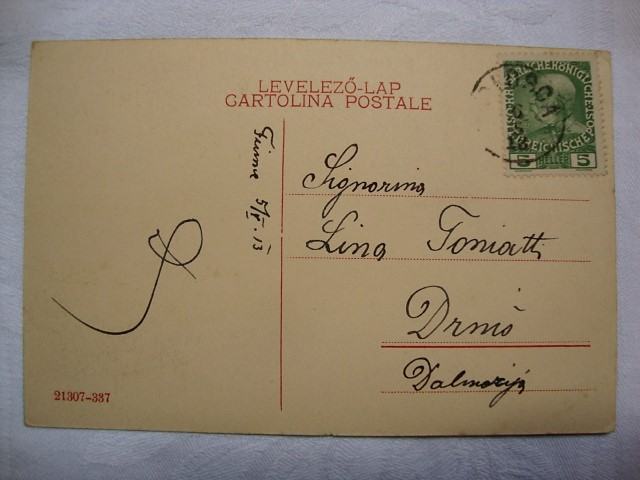 LEVELEZŐ-LAP
CARTOLINA POSTALE
5 HELLER 5
Fiume 5/V. 13
Signorina
Lina Toniatti
Drniš
Dalmazija
21307-337